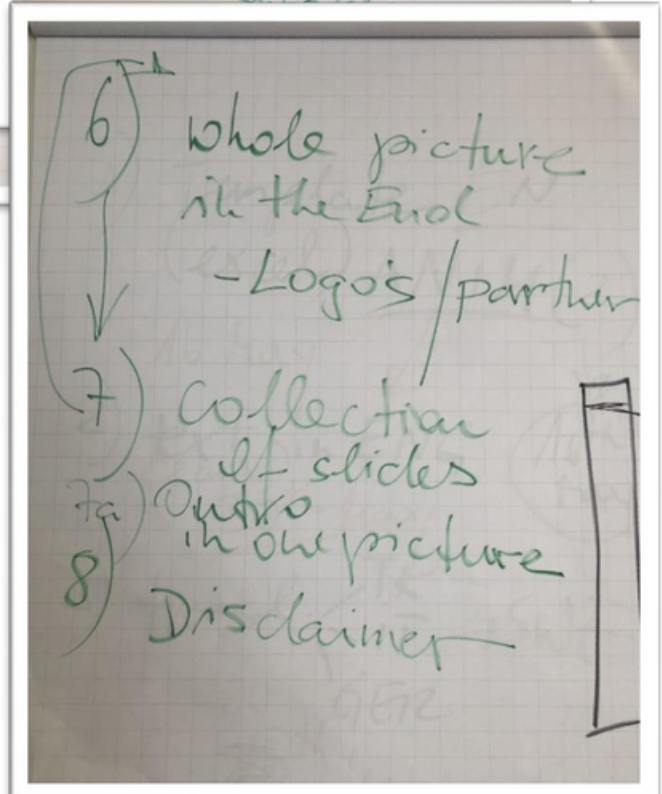 6) whole picture
in the End
- Logo's / partner
7) Collection
of slides
7a) Outro
in one picture
8) Disclaimer